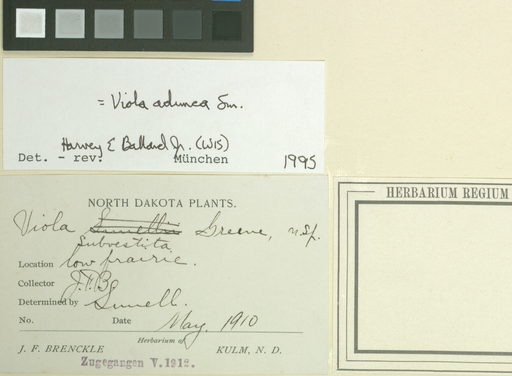 = Viola adunca Sm.
Harvey E Ballard Jr. (WIS)
Det. - rev. München 1995
NORTH DAKOTA PLANTS.
Viola Greene, n.sp.
subvestita
Location low prairie.
Collector J.F.B.
Determined by
No. Date May, 1910
Herbarium of
J. F. BRENCKLE KULM, N. D.
Zugegangen V.1912.
HERBARIUM REGIUM